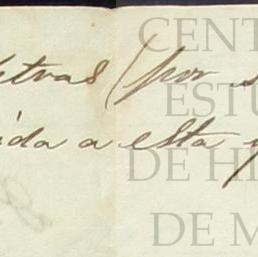 etras (por s
ida a esta y
CENT
ESTU
DE HI
DE M